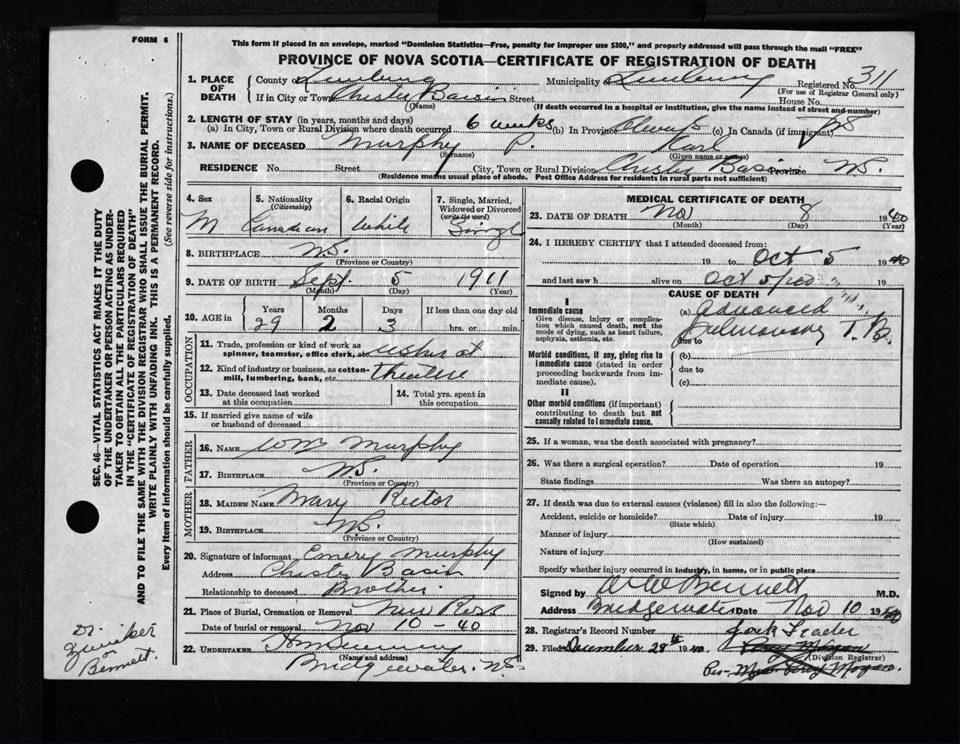 FORM 6
This form if placed in an envelope, marked "Dominion Statistics—Free, penalty for improper use $300," and properly addressed will pass through the mail "FREE"
PROVINCE OF NOVA SCOTIA—CERTIFICATE OF REGISTRATION OF DEATH
1. PLACE OF DEATH County of Lunenburg Municipality of Lunenburg Registered No. 311
(For use of Registrar General only)
If in City or Town Chester Basin Street House No.
(Name) (If death occurred in a hospital or institution, give the name instead of street and number)
2. LENGTH OF STAY (in years, months and days)
(a) In City, Town or Rural Division where death occurred 6 weeks (b) In Province always (c) In Canada (if immigrant) NS
3. NAME OF DECEASED Murphy P. Karl
(Surname) (Given name or names)
RESIDENCE No. Street City, Town or Rural Division Chester Basin Province NS.
(Residence means usual place of abode. Post Office Address for residents in rural parts not sufficient)
4. Sex M
5. Nationality (Citizenship) Canadian
6. Racial Origin White
7. Single, Married, Widowed or Divorced (write the word) Single
8. BIRTHPLACE NS.
(Province or Country)
9. DATE OF BIRTH Sept. 5 1911
(Month) (Day) (Year)
10. AGE in Years 29 Months 2 Days 3 If less than one day old hrs. or min.
OCCUPATION
11. Trade, profession or kind of work as spinner, teamster, office clerk, etc. usher at
12. Kind of industry or business, as cotton-mill, lumbering, bank, etc. theatre
13. Date deceased last worked at this occupation
14. Total yrs. spent in this occupation
15. If married give name of wife or husband of deceased
FATHER
16. NAME Wm Murphy
17. BIRTHPLACE NS.
(Province or Country)
MOTHER
18. MAIDEN NAME Mary Rector
19. BIRTHPLACE NS.
(Province or Country)
20. Signature of informant Emery Murphy
Address Chester Basin
Relationship to deceased Brother
21. Place of Burial, Cremation or Removal New Ross
Date of burial or removal Nov 10 - 40
22. UNDERTAKER
(Name and address)
Bridgewater. NS
MEDICAL CERTIFICATE OF DEATH
23. DATE OF DEATH Nov 8 1940
(Month) (Day) (Year)
24. I HEREBY CERTIFY that I attended deceased from:
19 to Oct 5 1940
and last saw h alive on Oct 5/40
CAUSE OF DEATH
I
Immediate cause
Give disease, injury or complication which caused death, not the mode of dying, such as heart failure, asphyxia, asthenia, etc.
(a) Advanced
Pulmonary T.B.
due to
Morbid conditions, if any, giving rise to immediate cause (stated in order proceeding backwards from immediate cause).
(b)
due to
(c)
II
Other morbid conditions (if important) contributing to death but not causally related to immediate cause.
25. If a woman, was the death associated with pregnancy?
26. Was there a surgical operation? Date of operation 19
State findings Was there an autopsy?
27. If death was due to external causes (violence) fill in also the following:—
Accident, suicide or homicide? Date of injury 19
(State which)
Manner of injury
(How sustained)
Nature of injury
Specify whether injury occurred in industry, in home, or in public place
Signed by Bennett M.D.
Address Bridgewater Date Nov 10 1940
28. Registrar's Record Number
29. Filed December 28th 1940.
Percy Morgan
(Division Registrar)
Per- Mrs Percy Morgan.
SEC. 46—VITAL STATISTICS ACT MAKES IT THE DUTY
OF THE UNDERTAKER OR PERSON ACTING AS UNDER-
TAKER TO OBTAIN ALL THE PARTICULARS REQUIRED
IN THE "CERTIFICATE OF REGISTRATION OF DEATH"
AND TO FILE THE SAME WITH THE DIVISION REGISTRAR WHO SHALL ISSUE THE BURIAL PERMIT.
WRITE PLAINLY WITH UNFADING INK. THIS IS A PERMANENT RECORD.
Every item of information should be carefully supplied. (See reverse side for instructions.)
Dr.
Zwicker
or
Bennett.